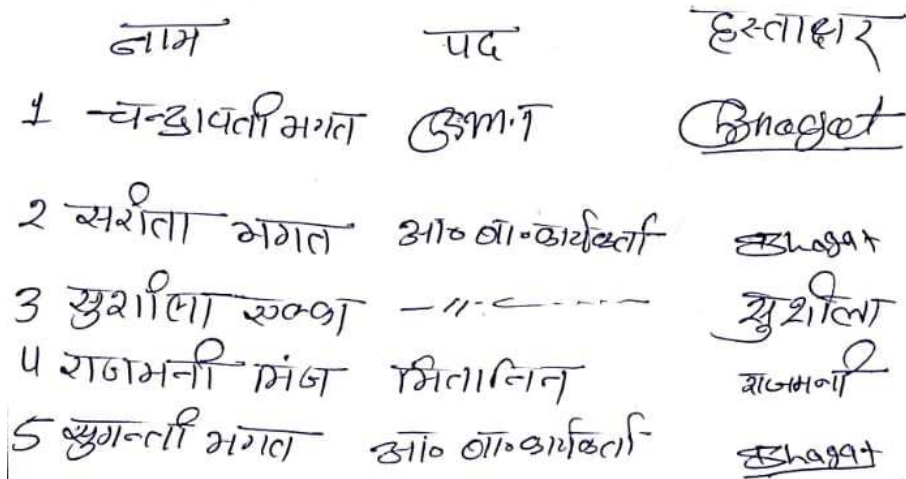 नाम पद हस्ताक्षर
1 चन्द्रावती भगत CBhagat
2 सरीता भगत आं० बा० कार्यकर्ता Bhagat
3 सुशीला एक्का —〃— सुशीला
4 राजमनी मिंज मितानिन राजमनी
5 सुगन्ती भगत आं० बा० कार्यकर्ता Bhagat